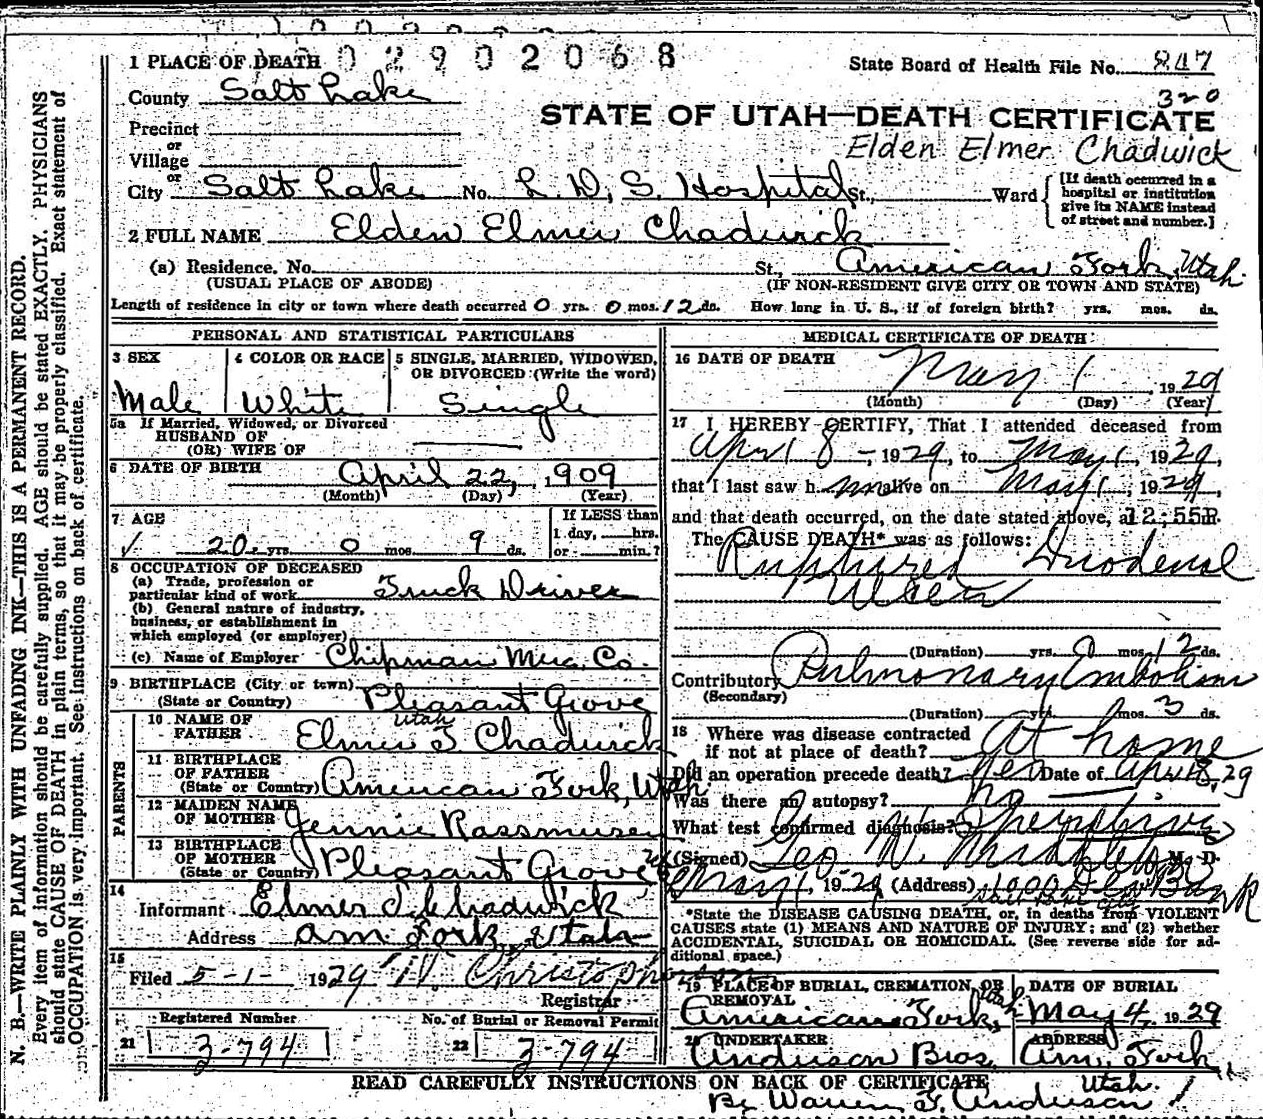 0 2 9 0 2 0 6 8
1 PLACE OF DEATH
State Board of Health File No. 847
320
County Salt Lake
STATE OF UTAH—DEATH CERTIFICATE
Precinct
or
Elden Elmer Chadwick
Village
or
City Salt Lake No. L. D. S. Hospital St., Ward
[If death occurred in a
hospital or institution
give its NAME instead
of street and number.]
2 FULL NAME Elden Elmer Chadwick
(a) Residence. No. St., American Fork, Utah.
(USUAL PLACE OF ABODE) (IF NON-RESIDENT GIVE CITY OR TOWN AND STATE)
Length of residence in city or town where death occurred 0 yrs. 0 mos. 12 ds. How long in U. S., if of foreign birth? yrs. mos. ds.
PERSONAL AND STATISTICAL PARTICULARS
3 SEX 4 COLOR OR RACE 5 SINGLE, MARRIED, WIDOWED,
OR DIVORCED (Write the word)
Male White Single
5a If Married, Widowed, or Divorced
HUSBAND OF
(OR) WIFE OF
6 DATE OF BIRTH April 22, 1909
(Month) (Day) (Year)
7 AGE If LESS than
1 day, hrs.
20 yrs. 0 mos. 9 ds. or min.?
8 OCCUPATION OF DECEASED
(a) Trade, profession or
particular kind of work Truck Driver
(b) General nature of industry,
business, or establishment in
which employed (or employer)
(c) Name of Employer Chipman Merc. Co.
9 BIRTHPLACE (City or town)
(State or Country) Pleasant Grove
Utah
PARENTS
10 NAME OF
FATHER Elmer T Chadwick
11 BIRTHPLACE
OF FATHER
(State or Country) American Fork, Utah
12 MAIDEN NAME
OF MOTHER Jennie Rassmusen
13 BIRTHPLACE
OF MOTHER
(State or Country) Pleasant Grove
14
Informant Elmer Chadwick
Address Am. Fork, Utah
15
Filed 5-1- 1929 Christopherson
Registrar
Registered Number No. of Burial or Removal Permit
21 3-794 22 3-794
MEDICAL CERTIFICATE OF DEATH
16 DATE OF DEATH May 1 1929
(Month) (Day) (Year)
17 I HEREBY CERTIFY, That I attended deceased from
April 8 - 1929, to May 1, 1929,
that I last saw him alive on May 1, 1929,
and that death occurred, on the date stated above, at 12:55 m.
The CAUSE DEATH* was as follows:
Ruptured Duodenal
Ulcer
(Duration) yrs. 0 mos. 12 ds.
Contributory Pulmonary Embolism
(Secondary)
(Duration) yrs. mos. 3 ds.
18 Where was disease contracted
if not at place of death? At home
Did an operation precede death? Yes Date of Apr 18, 29
Was there an autopsy? no
What test confirmed diagnosis?
(Signed) Geo W. Middleton M. D.
May 1, 1929 (Address) 1000 Bank
Salt Lake City
*State the DISEASE CAUSING DEATH, or, in deaths from VIOLENT
CAUSES state (1) MEANS AND NATURE OF INJURY; and (2) whether
ACCIDENTAL, SUICIDAL OR HOMICIDAL. (See reverse side for ad-
ditional space.)
19 PLACE OF BURIAL, CREMATION, OR
REMOVAL DATE OF BURIAL
American Fork, Utah May 4, 1929
20 UNDERTAKER ADDRESS
Anderson Bros. Am. Fork,
Utah.
READ CAREFULLY INSTRUCTIONS ON BACK OF CERTIFICATE
By Warren T. Anderson
N. B.—WRITE PLAINLY WITH UNFADING INK—THIS IS A PERMANENT RECORD.
Every item of information should be carefully supplied. AGE should be stated EXACTLY. PHYSICIANS
should state CAUSE OF DEATH in plain terms, so that it may be properly classified. Exact statement of
OCCUPATION is very important. See instructions on back of certificate.